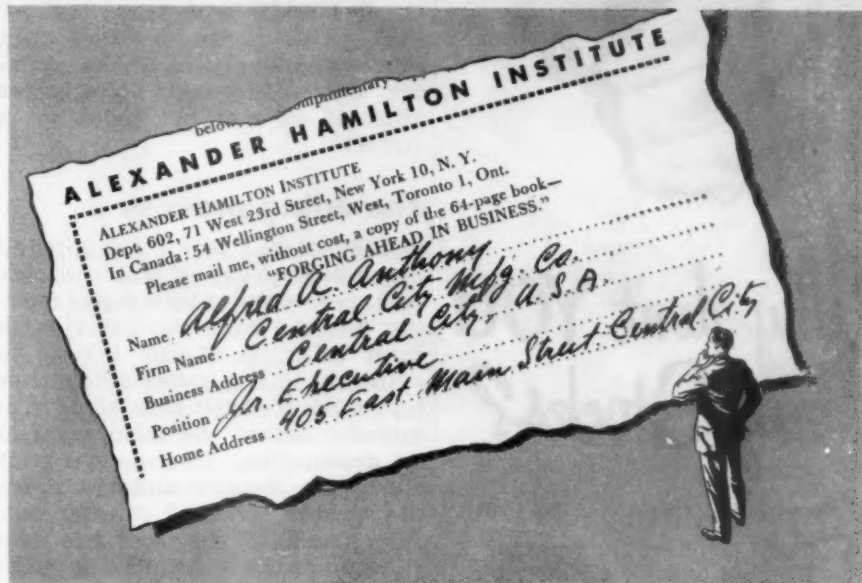 below, complimentary
ALEXANDER HAMILTON INSTITUTE
ALEXANDER HAMILTON INSTITUTE
Dept. 602, 71 West 23rd Street, New York 10, N. Y.
In Canada: 54 Wellington Street, West, Toronto 1, Ont.
Please mail me, without cost, a copy of the 64-page book—
"FORGING AHEAD IN BUSINESS."
Name Alfred A. Anthony
Firm Name Central City Mfg. Co.
Business Address Central City, U.S.A
Position Jr. Executive
Home Address 405 East Main Street Central City